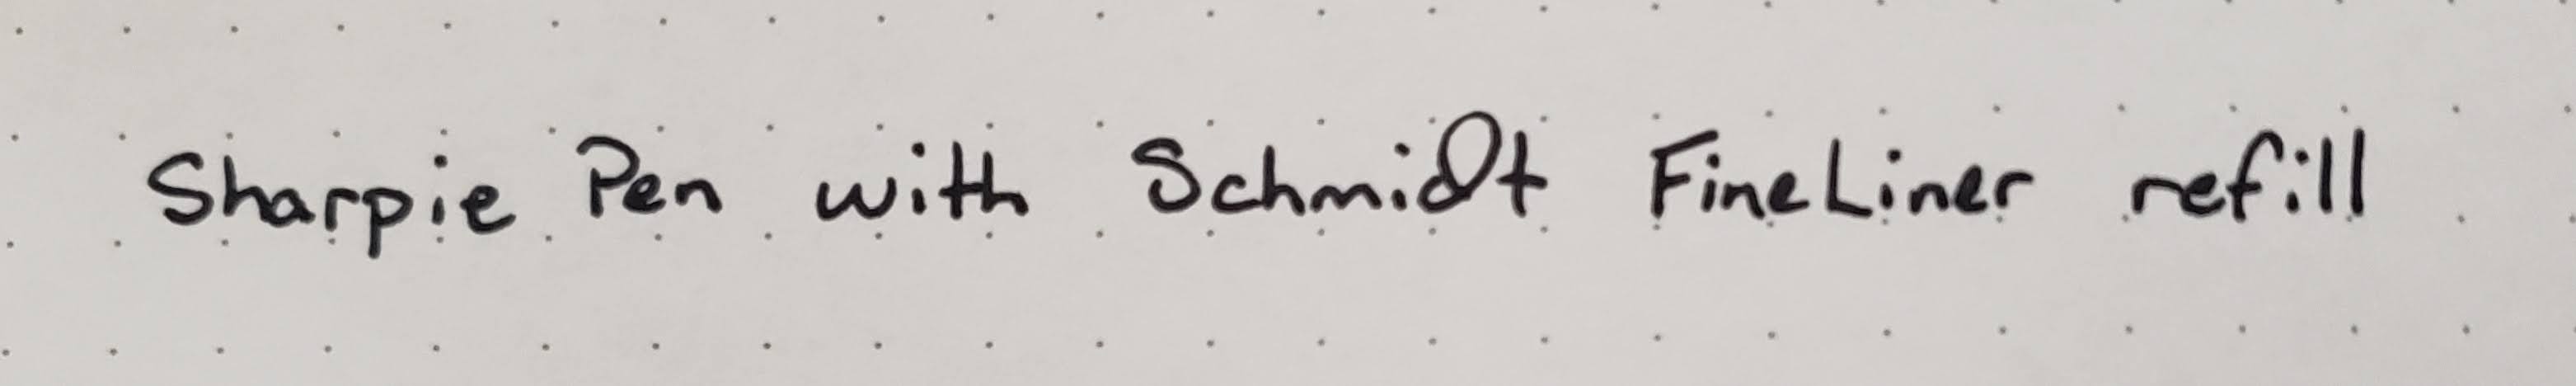 Sharpie Pen with Schmidt FineLiner refill